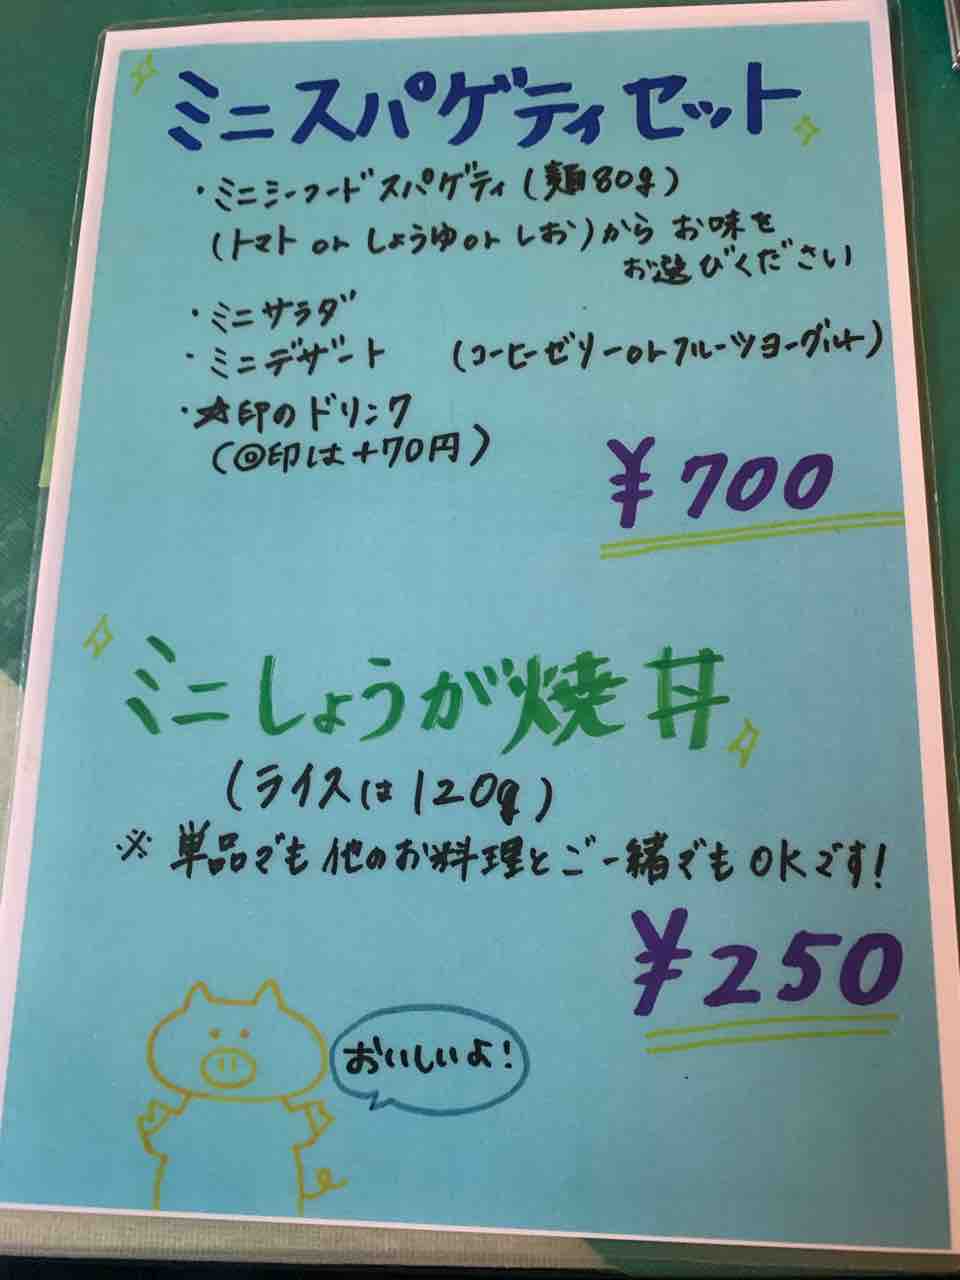 ミニスパゲティセット
・ミニシーフードスパゲティ(麺80g)
(トマト or しょうゆ or しお)から お味を
お選びください
・ミニサラダ
・ミニデザート (コーヒーゼリー or フルーツヨーグルト)
・☆印のドリンク
(◎印は+70円)
¥700
ミニしょうが焼丼
(ライスは120g)
※ 単品でも他のお料理とご一緒でもOKです!
¥250
おいしいよ!